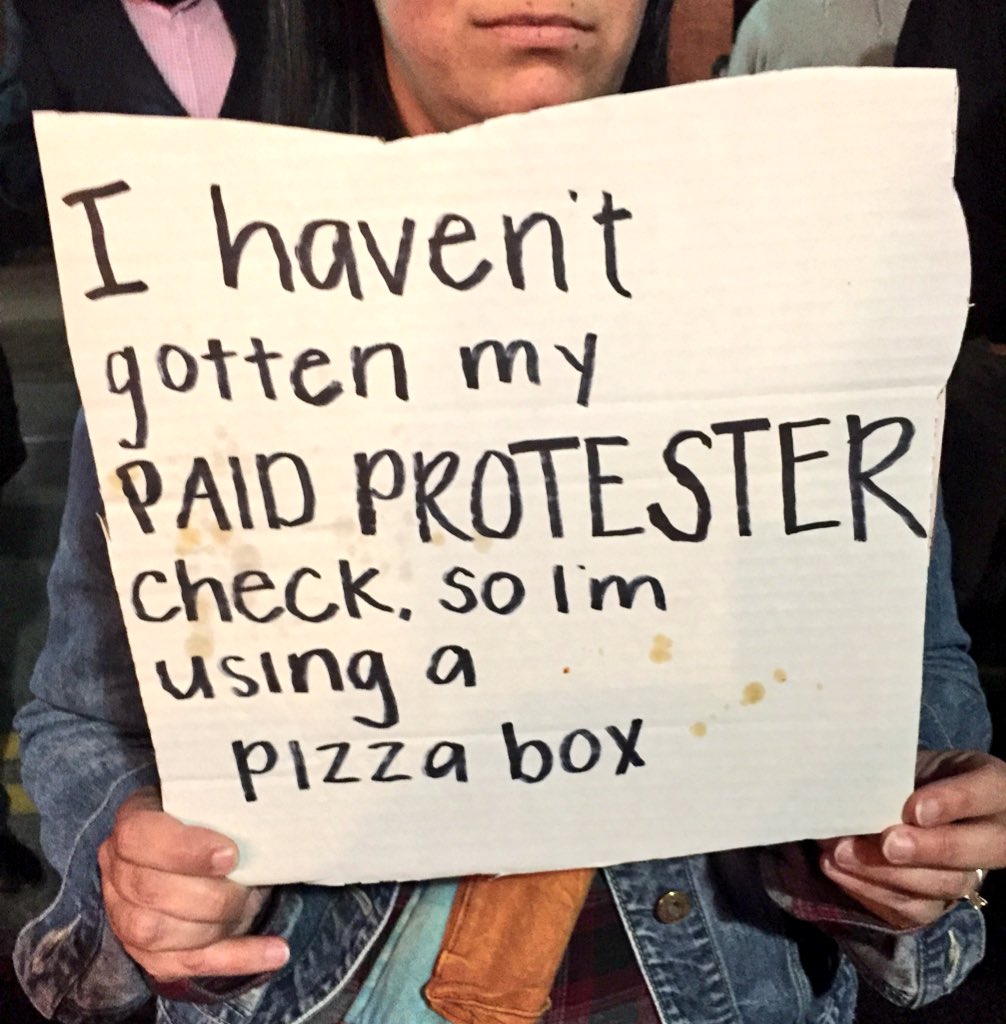 I haven't
gotten my
PAID PROTESTER
check, so I'm
using a
pizza box